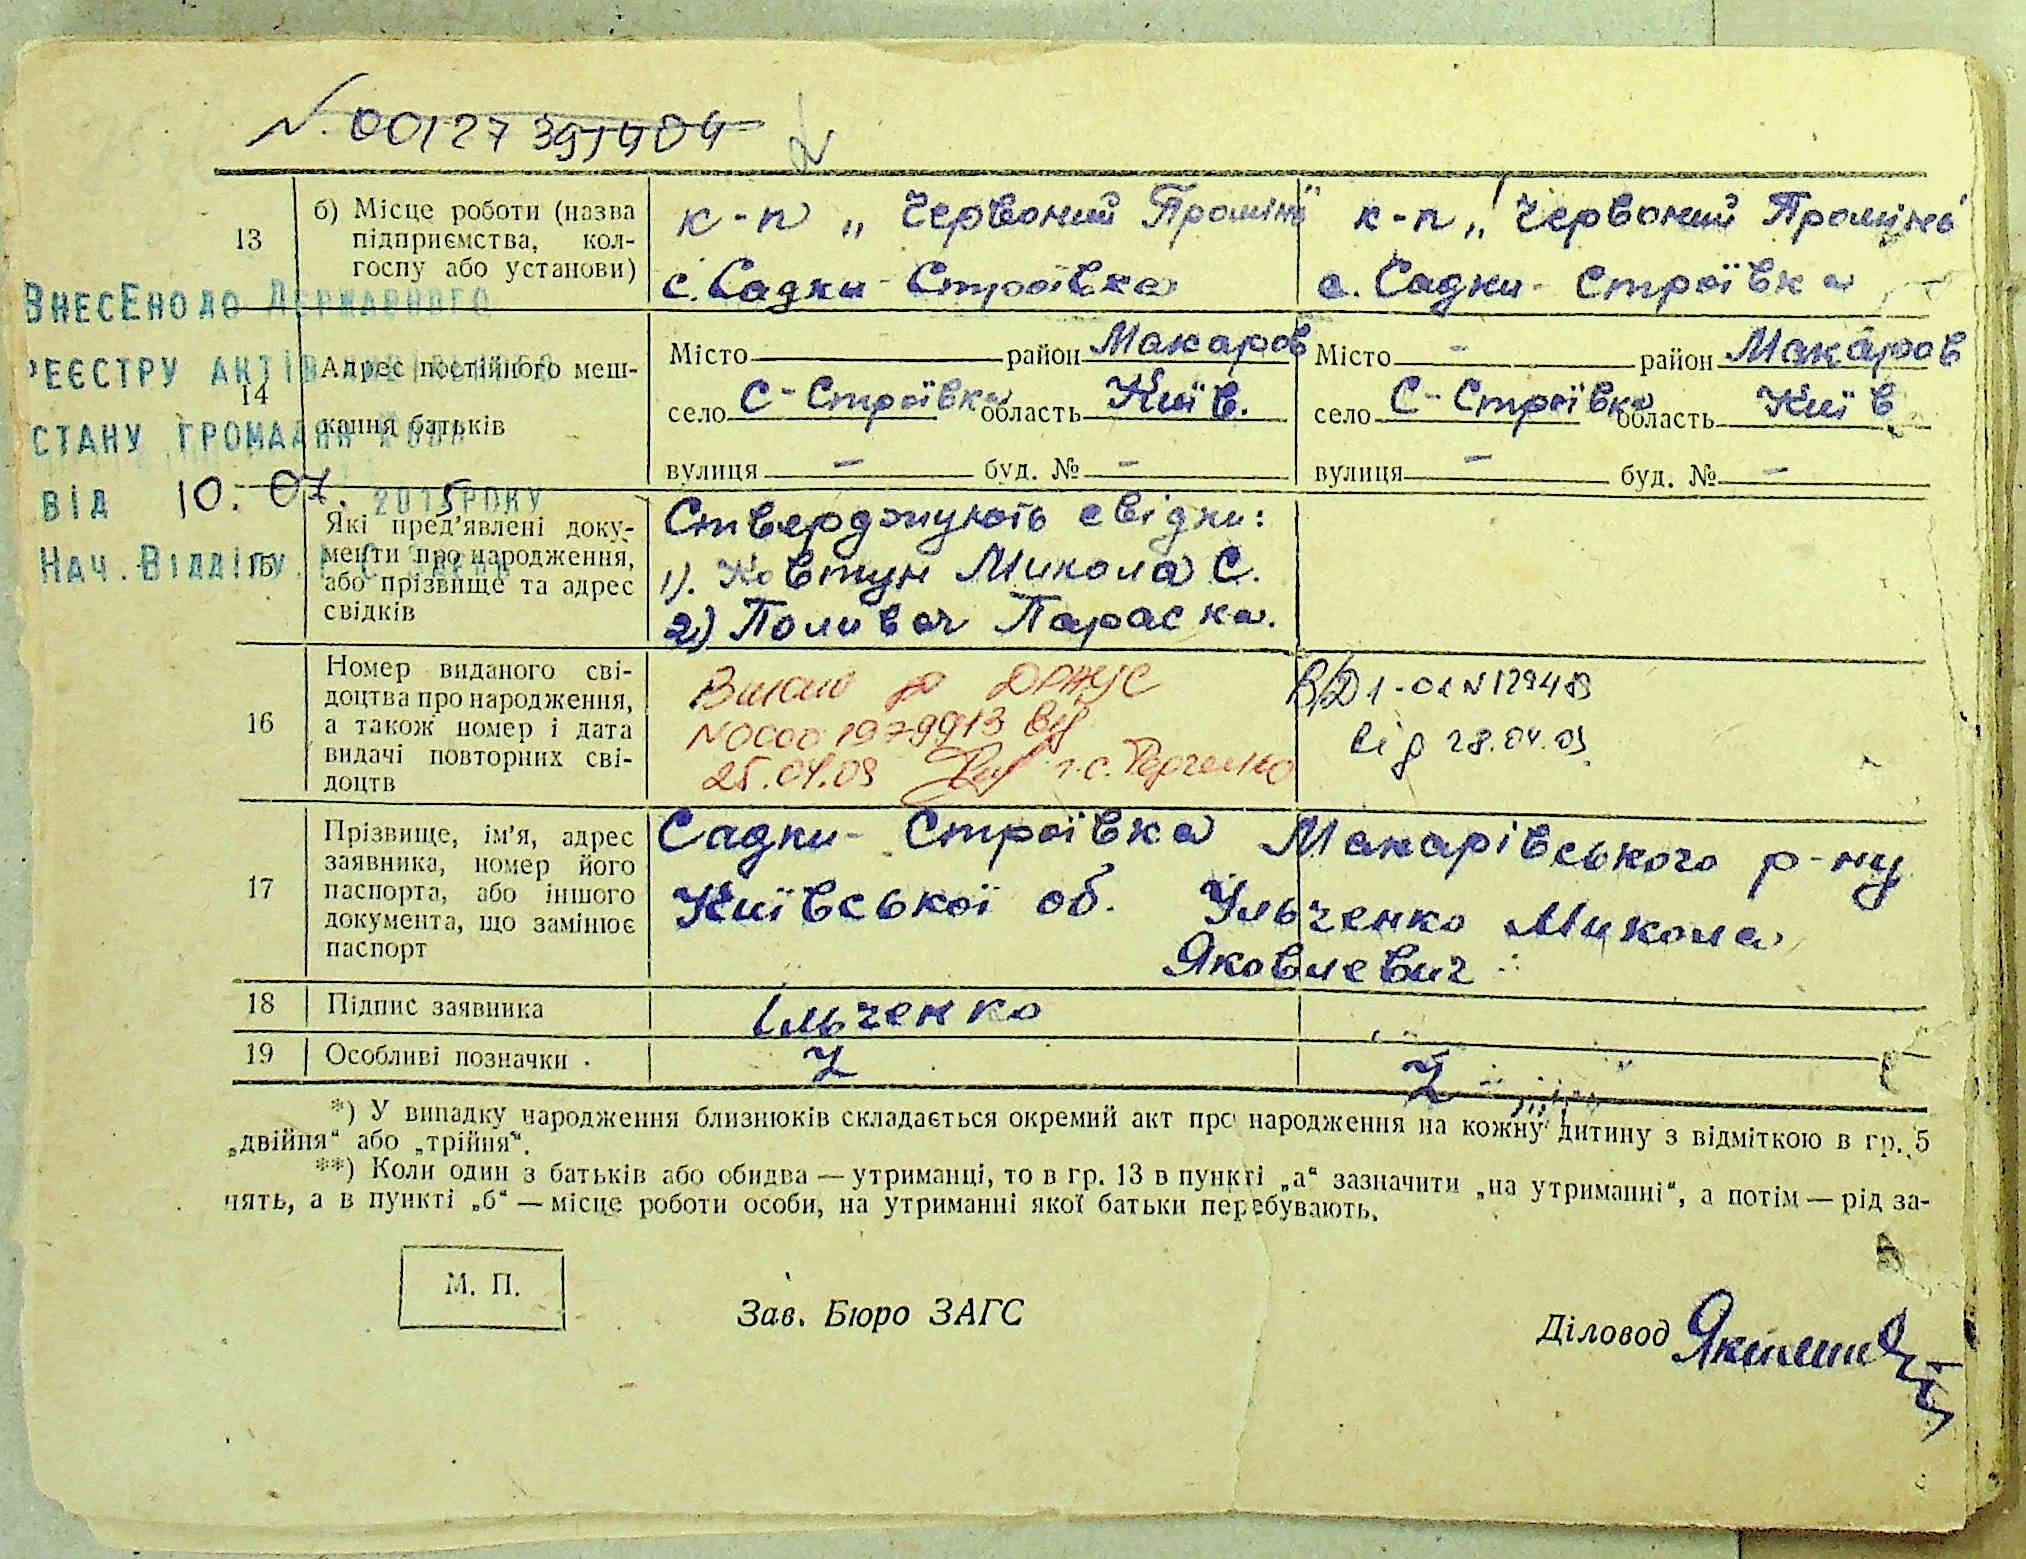 N. 00127391404
13
б) Місце роботи (назва
підприємства, кол-
госпу або установи)
к-п „Червоний Промінь"
с. Садки-Строївка
к-п „Червоний Промінь"
с. Садки-Строївка
14
Адрес постійного меш-
кання батьків
Місто район Макаров
село С-Строївка область Київ.
вулиця - буд. № -
Місто - район Макаров
село С-Строївка область Київ
вулиця - буд. № -
Внесено до Державного
реєстру актів цивільного
стану громадян
від 10.07.2015 року
Нач. Відділу
15
Які пред'явлені доку-
менти про народження,
або прізвище та адрес
свідків
Стверджують свідки:
1). Ковтун Микола С.
2) Поливач Параска.
16
Номер виданого сві-
доцтва про народження,
а також номер і дата
видачі повторних сві-
доцтв
ДРАЦС
N00001979913 від
25.04.09
28.04.09
17
Прізвище, ім'я, адрес
заявника, номер його
паспорта, або іншого
документа, що замінює
паспорт
Садки-Строївка Макарівського р-ну
Київської об. Ільченко Микола
Яковлевич
18
Підпис заявника
Ільченко
19
Особливі позначки
*) У випадку народження близнюків складається окремий акт про народження на кожну дитину з відміткою в гр. 5
„двійня" або „трійня".
**) Коли один з батьків або обидва — утриманці, то в гр. 13 в пункті „а" зазначити „на утриманні", а потім — рід за-
нять, а в пункті „б" — місце роботи особи, на утриманні якої батьки перебувають.
М. П.
Зав. Бюро ЗАГС
Діловод